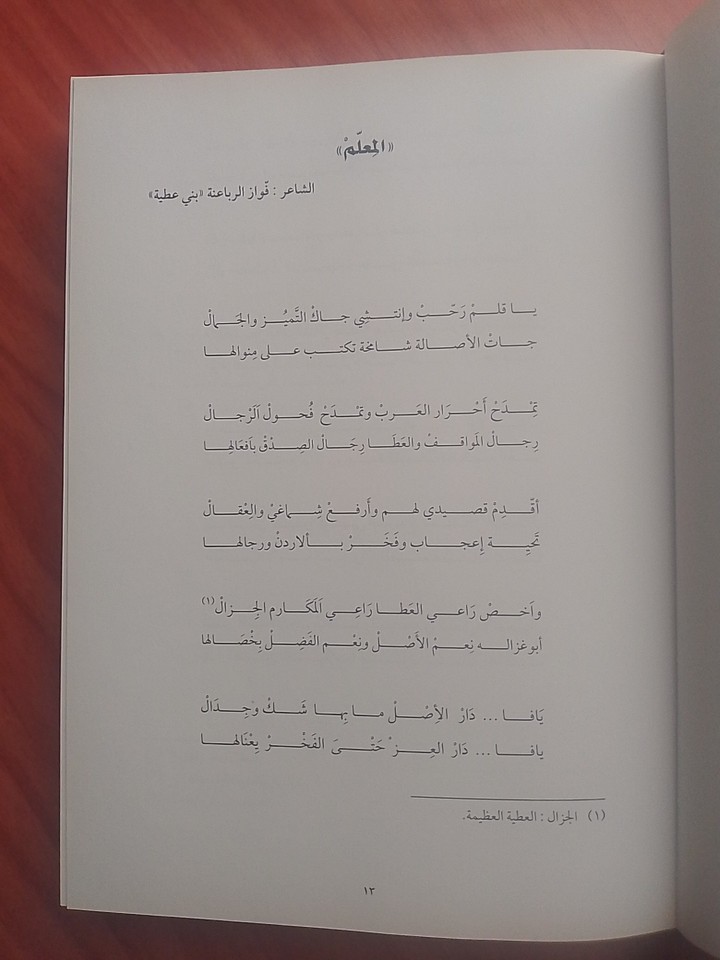 «المِعلّمْ»
الشاعر : فّواز الرباعنة «بني عطية»
يــا قلــمْ رَحّــبْ وإنتــشِي جــاكْ التَّميُــز والجَــمالْ
جــاتْ الأصــالة شــامخة تكتــب عــلى مِنوالهــا
تِمْــدَحْ أَحْــرَار العَــربْ وتمْــدَحْ فُحــولْ اَلَرْجــال
رِجــال المَواقــفْ والعَطَــا رِجَــال الصِــدْقْ بأفعَالِهــا
أقّــدِمْ قصــيدي لهــم وأَرفــعْ شِــماغيْ والِعْقــالْ
تَحَيِــة إِعجــاب وفَخَــرْ بــألاردنْ ورجالهــا
وأَخــصْ رَاعــي العَطــا رَاعِــي اَلَمَكــارم الجِــزالْ(١)
أبوغزالــه نِعــمْ الأَصْــلْ ونِعْــم الفَضِــلْ بِخْصَــالها
يَافــا ... دَارْ الأِصْــلْ مــا بِهــا شَــكْ وَجِــدَالْ
يافــا ... دَارْ العِــزْ حَتْــىَ الفَخْــرْ بِعْنَالهــا
(١) الجزال : العطية العظيمة.
١٣